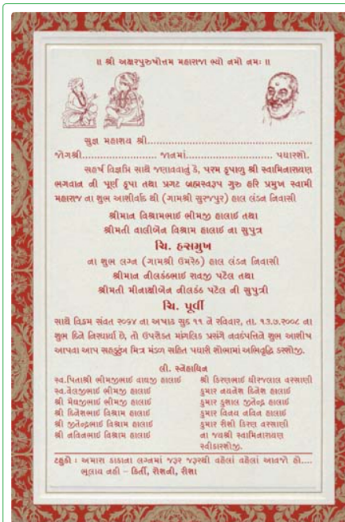 ॥ શ્રી અક્ષરપુરુષોત્તમ મહારાજા ભ્યો નમો નમઃ ॥
સુજ્ઞ મહાશય શ્રી................................................
જોગશ્રી.................... જાનમાં........................ પધારશો.
સહર્ષ વિજ્ઞપ્તિ સાથે જણાવવાનું કે, પરમ કૃપાળુ શ્રી સ્વામિનારાયણ
ભગવાન ની પૂર્ણ કૃપા તથા પ્રગટ બ્રહ્મસ્વરૂપ ગુરુ હરિ પ્રમુખ સ્વામી
મહારાજ ના શુભ આશીર્વાદ થી (ગામશ્રી સુરજપુર) હાલ લંડન નિવાસી
શ્રીમાન વિશ્રામભાઈ ભીમજી હાલાઈ તથા
શ્રીમતી વાલીબેન વિશ્રામ હાલાઈ ના સુપુત્ર
ચિ. હસમુખ
ના શુભ લગ્ન (ગામશ્રી ઉમરેઠ) હાલ લંડન નિવાસી
શ્રીમાન નીલકંઠભાઈ રાવજી પટેલ તથા
શ્રીમતી મીનાક્ષીબેન નીલકંઠ પટેલ ની સુપુત્રી
ચિ. પૂર્વી
સાથે વિક્રમ સંવત ૨૦૬૪ ના અષાઢ સુદ ૧૧ ને રવિવાર, તા. ૧૩.૭.૨૦૦૮ ના
શુભ દિને નિરધાર્યા છે, તો ઉપરોક્ત માંગલિક પ્રસંગે નવદંપતિને શુભ આશીષ
આપવા આપ સહકુટુંબ મિત્ર મંડળ સહિત પધારી શોભામાં અભિવૃદ્ધિ કરશોજી.
લી. સ્નેહાધિન
સ્વ.પિતાશ્રી ભીમજીભાઈ વાઘજી હાલાઈ
સ્વ.વેલજીભાઈ ભીમજી હાલાઈ
શ્રી મેઘજીભાઈ ભીમજી હાલાઈ
શ્રી દિનેશભાઈ વિશ્રામ હાલાઈ
શ્રી જીતેન્દ્રભાઈ વિશ્રામ હાલાઈ
શ્રી નવિનભાઈ વિશ્રામ હાલાઈ
શ્રી કિરણભાઈ ધીરજલાલ વરસાણી
કુમાર નયનેશ દિનેશ હાલાઈ
કુમાર કુશાલ જીતેન્દ્ર હાલાઈ
કુમાર વિનય નવિન હાલાઈ
કુમાર રીશી કિરણ વરસાણી
ના જયશ્રી સ્વામિનારાયણ
સ્વીકારશોજી.
ટહુકો : અમારા કાકાના લગ્નમાં જરૂર જરૂરથી વહેલાં વહેલાં આવજો હો....
ભૂલાય નહી - કિર્તી, રોશની, રીશા